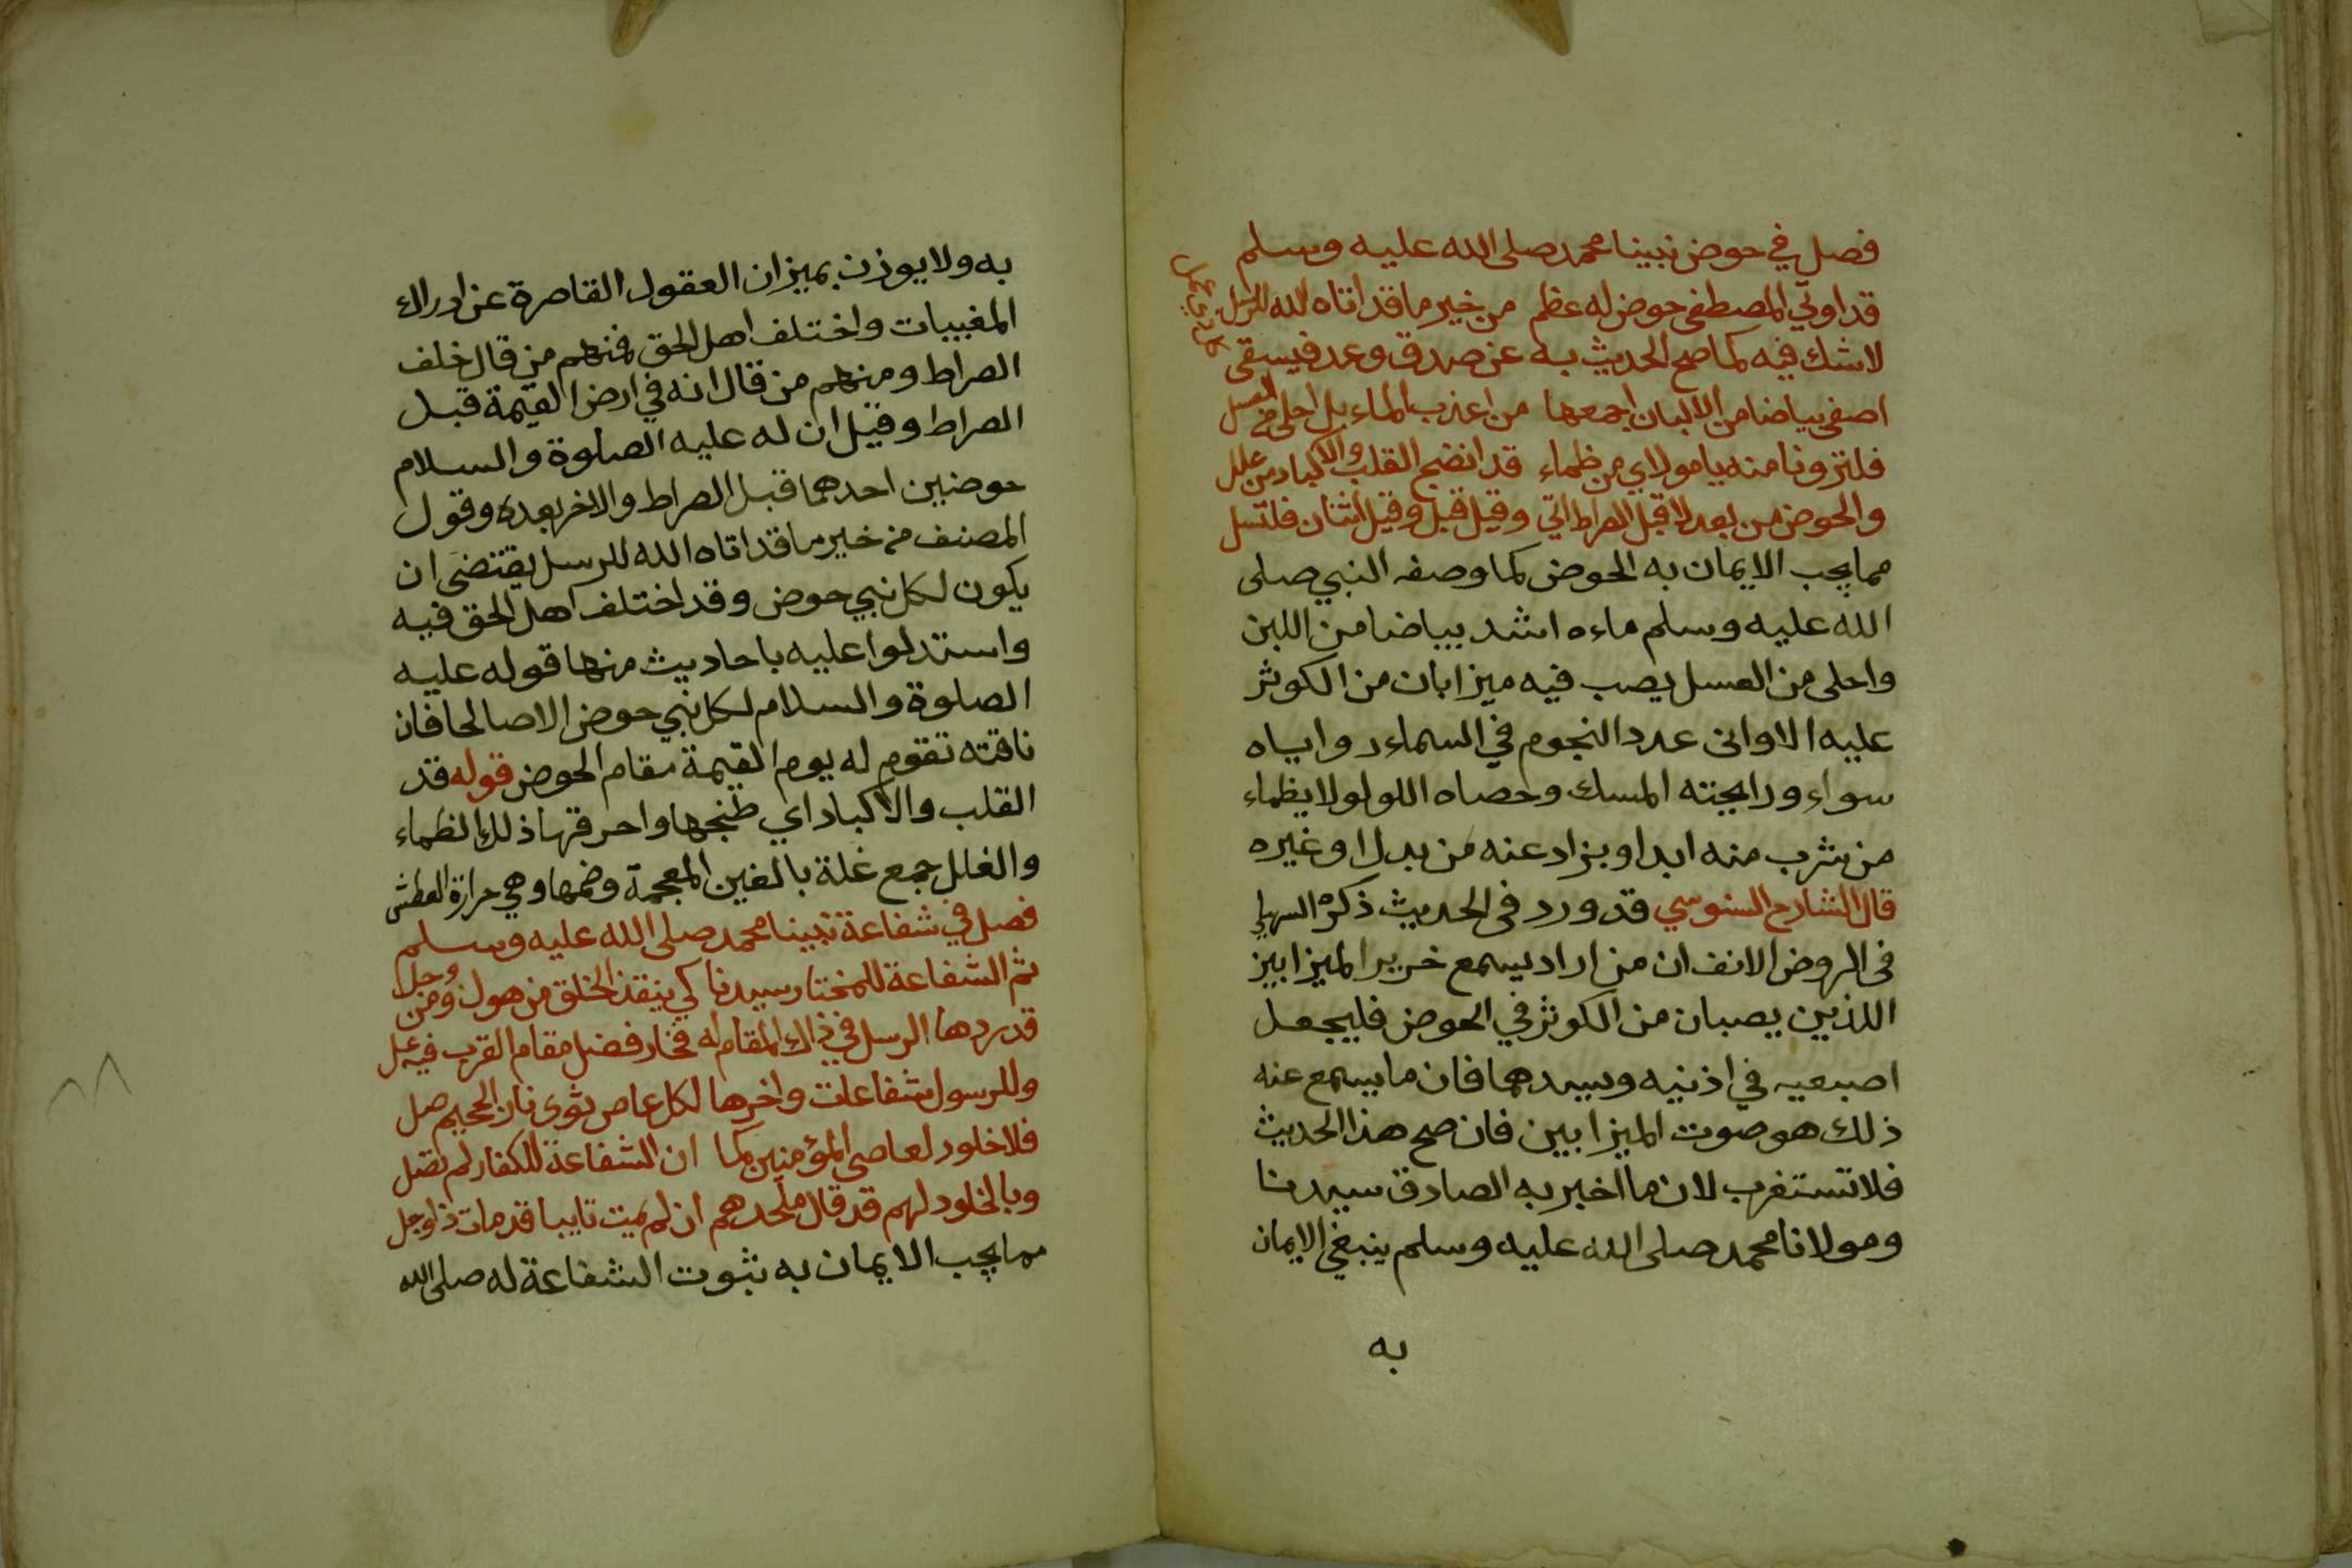 فصل في حوض نبينا محمد صلى الله عليه وسلم
قد اوتي المصطفى حوض له عظم من خير ما قد اتاه الله للرسل
لا شك فيه كما صح الحديث به عن صدق وعد فيسقى
اصفى بياضا من الالبان اجمعها من اعذب الماء بل احلى من العسل
فلترونا منه يا مولاي من ظماء قد انضج القلب والاكباد من غلل
والحوض من بعد لا قبل الصراط اتي وقيل قبل وقيل اثنان فلتسل
مما يجب الايمان به الحوض كما وصفه النبي صلى
الله عليه وسلم ماءه اشد بياضا من اللبن
واحلى من العسل يصب فيه ميزابان من الكوثر
عليه الاوانى عدد النجوم في السماء زواياه
سواء ورايحته المسك وحصاه اللولو لا يظماء
من شرب منه ابدا ويزاد عنه من بدل او غيره
قال الشارح السنوسي قد ورد فى الحديث ذكره السهيلي
فى الروض الانف ان من اراد يسمع خرير الميزابين
اللذين يصبان من الكوثر في الحوض فليجعل
اصبعيه في اذنيه ويسدهما فان ما يسمع عنه
ذلك هو صوت الميزابين فان صح هذا الحديث
فلا تستغرب لان ما اخبر به الصادق سيدنا
ومولانا محمد صلى الله عليه وسلم ينبغي الايمان
به
به ولا يوزن بميزان العقول القاصرة عن ادراك
المغيبات واختلف اهل الحق فمنهم من قال خلف
الصراط ومنهم من قال انه في ارض القيمة قبل
الصراط وقيل ان له عليه الصلوة والسلام
حوضين احدهما قبل الصراط والاخر بعده وقول
المصنف من خير ما قد اتاه الله للرسل يقتضى ان
يكون لكل نبي حوض وقد اختلف اهل الحق فيه
واستدلوا عليه باحاديث منها قوله عليه
الصلوة والسلام لكل نبي حوض الا صالحا فان
ناقته تقوم له يوم القيمة مقام الحوض قوله قد
القلب والاكباد اي طنجها واحرقها ذلك الظماء
والغلل جمع غلة بالغين المعجمة وضمها وهي حرارة العطش
فصل في شفاعة نبينا محمد صلى الله عليه وسلم
ثم الشفاعة للمختار سيدنا كي ينقذ الخلق من هول ومن وجل
قد ردها الرسل في ذاك المقام له فخار فضل مقام القرب فيه عل
وللرسول شفاعات واخرها لكل عاص ثوى نار الجحيم صل
فلا خلود لعاصي المؤمنين كما ان الشفاعة للكفار لم تصل
وبالخلود لهم قد قال ملحدهم ان لم يمت تايبا قد مات ذا وجل
مما يجب الايمان به ثبوت الشفاعة له صلى الله